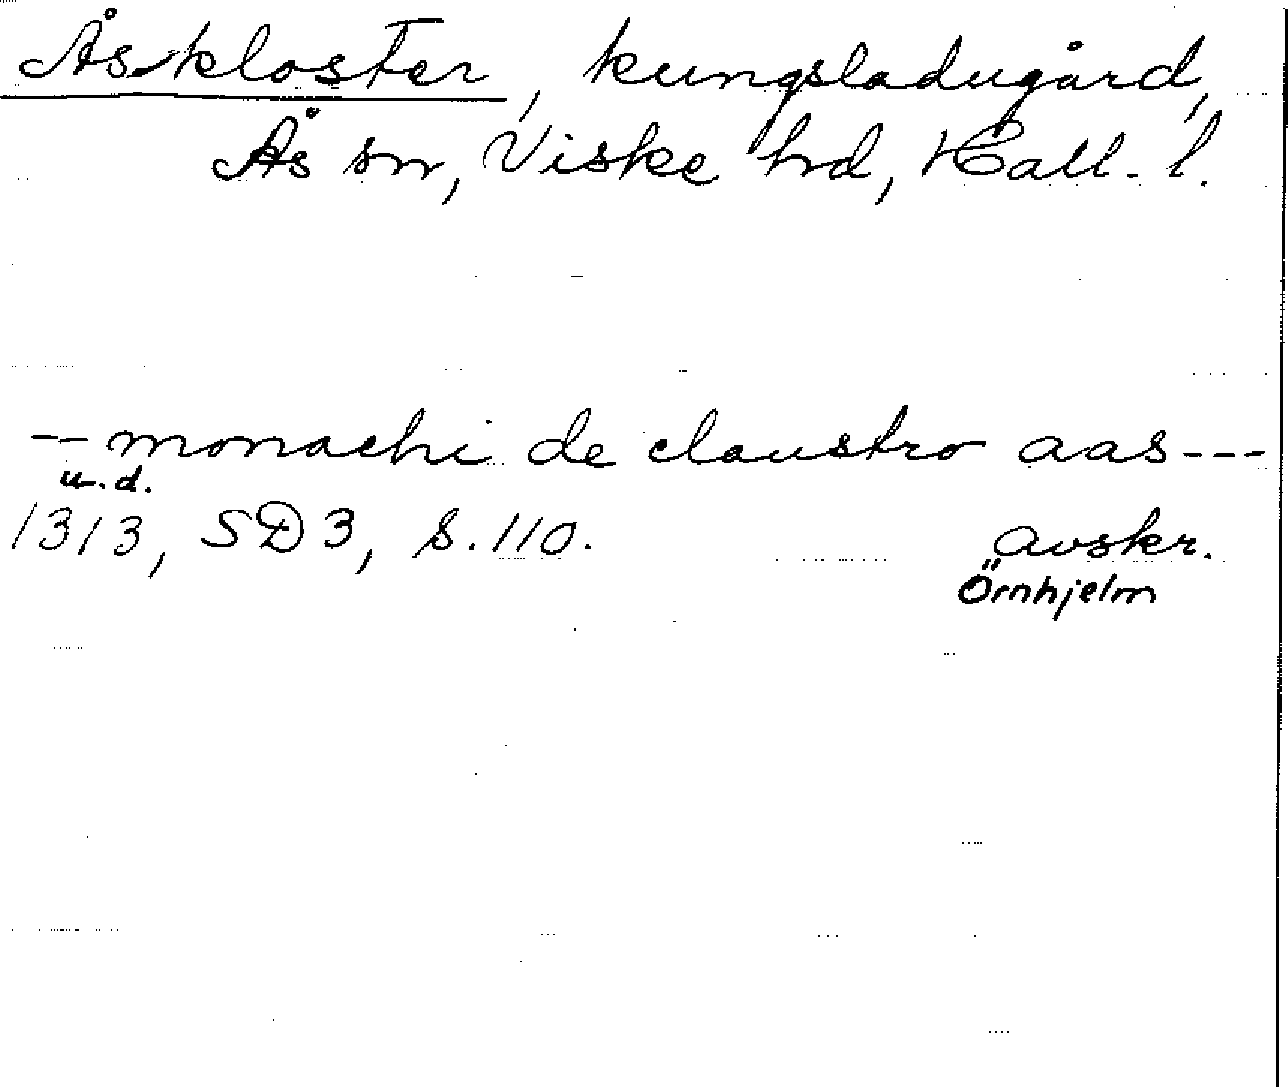 Åskloster, kungsladugård,
Ås sn, Viske hd, Hall. l.
-- monachi de claustro aas ---
u.d.
1313, SD3, s. 110. avskr.
Örnhjelm